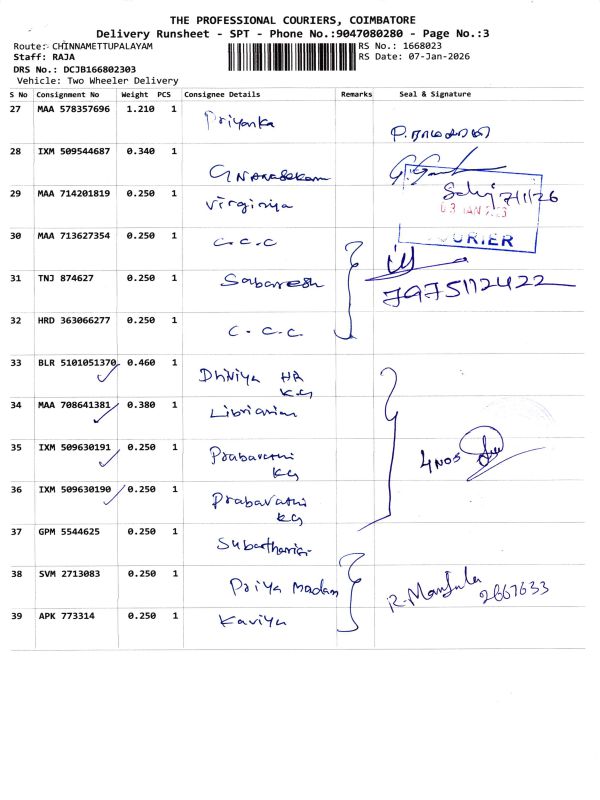 THE PROFESSIONAL COURIERS, COIMBATORE
Delivery Runsheet - SPT - Phone No.:9047080280 - Page No.:3
Route: CHINNAMETTUPALAYAM RS No.: 1668023
Staff: RAJA RS Date: 07-Jan-2026
DRS No.: DCJB166802303
Vehicle: Two Wheeler Delivery
S No Consignment No Weight PCS Consignee Details Remarks Seal & Signature
27 MAA 578357696 1.210 1 Priyanka
28 IXM 509544687 0.340 1 Gnanasekaran
29 MAA 714201819 0.250 1 Virginiya 7/1/26
30 MAA 713627354 0.250 1 C.C.C COURIER
31 TNJ 874627 0.250 1 Sabaresh 7975112422
32 HRD 363066277 0.250 1 C.C.C
33 BLR 5101051370 0.460 1 Dhiviya HR
KG
34 MAA 708641381 0.380 1 Librarian
35 IXM 509630191 0.250 1 Prabavathi 4 NOS
KG
36 IXM 509630190 0.250 1 Prabavathi
KG
37 GPM 5544625 0.250 1
38 SVM 2713083 0.250 1 Priya Madam R. Manjula
2667633
39 APK 773314 0.250 1 Kaviya